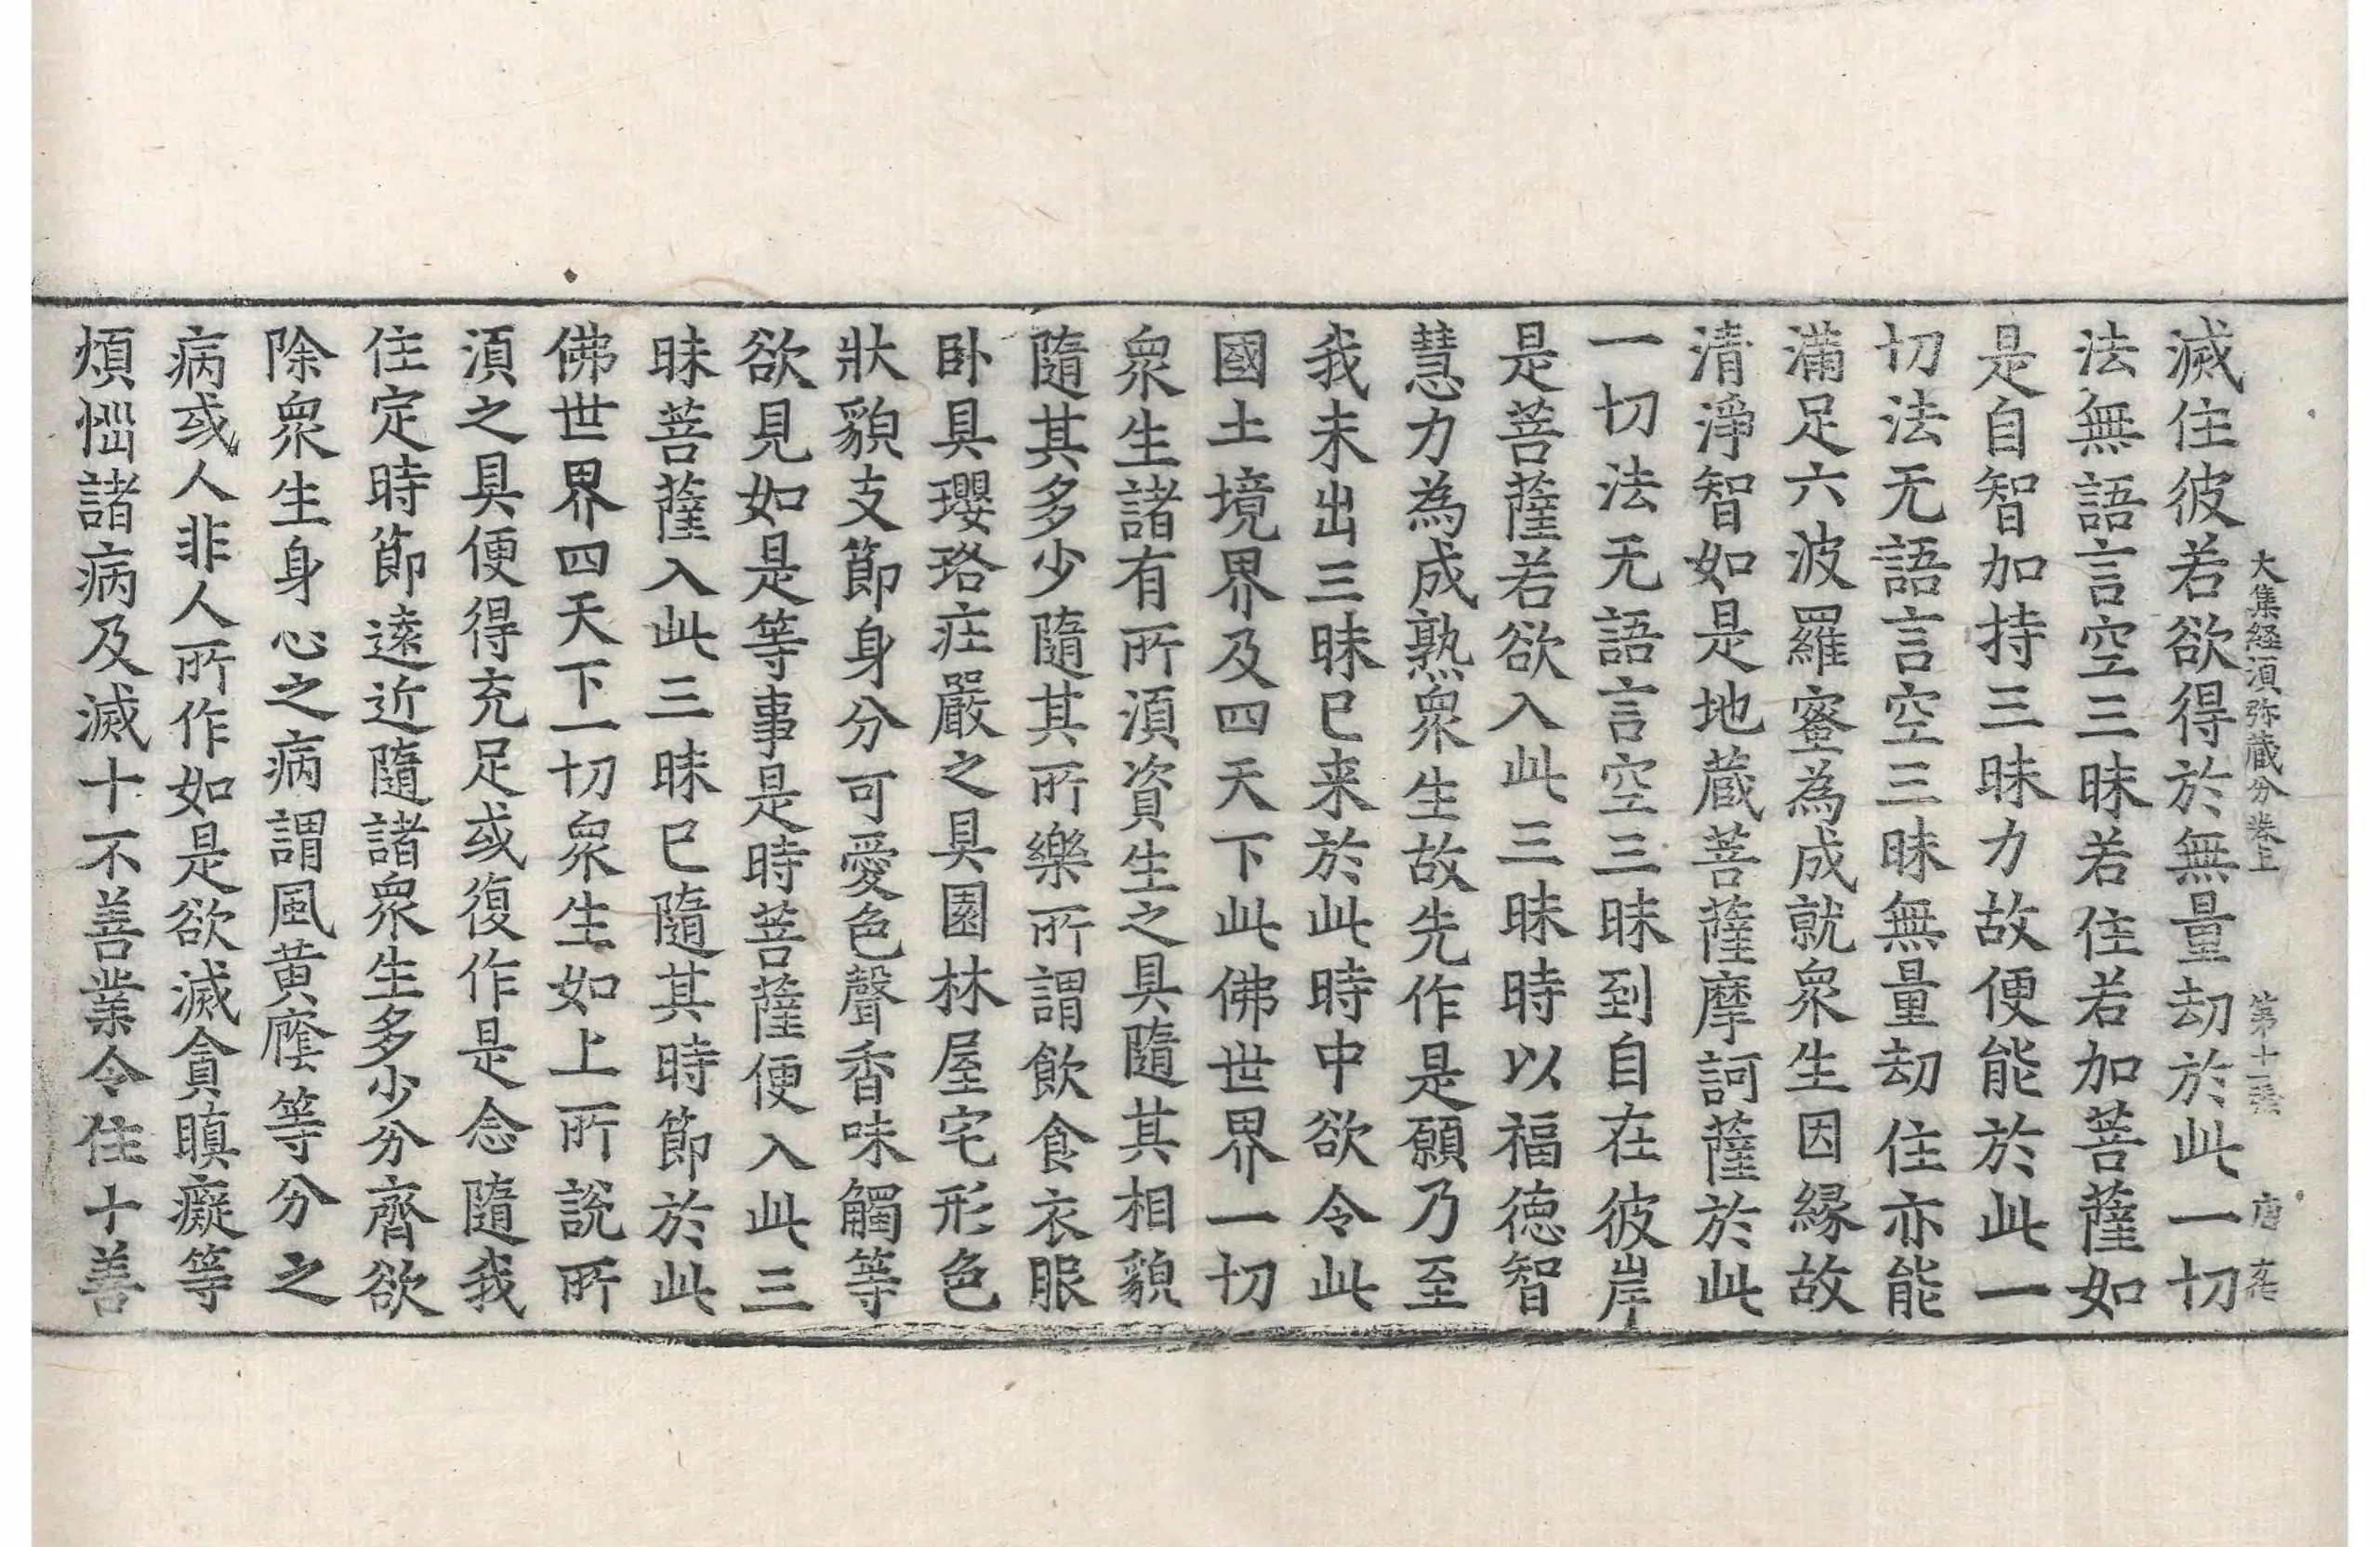 大集経湏弥蔵分卷上 第十一張 唐
滅住彼若欲得於無量劫於此一切
法無語言空三昧若住若加菩薩如
是自智加持三昧力故便能於此一
切法无語言空三昧無量劫住亦能
滿足六波羅蜜為成就衆生因縁故
清淨智如是地蔵菩薩摩訶薩於此
一切法无語言空三昧到自在彼岸
是菩薩若欲入此三昧時以福徳智
慧力為成熟衆生故先作是願乃至
我未出三昧已来於此時中欲令此
國土境界及四天下此佛世界一切
衆生諸有所湏資生之具隨其相貌
隨其多少隨其所樂所謂飲食衣服
卧具瓔珞莊嚴之具園林屋宅形色
狀貌支節身分可愛色聲香味觸等
欲見如是等事是時菩薩便入此三
昧菩薩入此三昧已隨其時節於此
佛世界四天下一切衆生如上所說所
湏之具便得充足或復作是念隨我
住定時節遠近隨諸衆生多少分齊欲
除衆生身心之病謂風黄癊等分之
病或人非人所作如是欲滅貪瞋癡等
煩惱諸病及滅十不善業令住十善